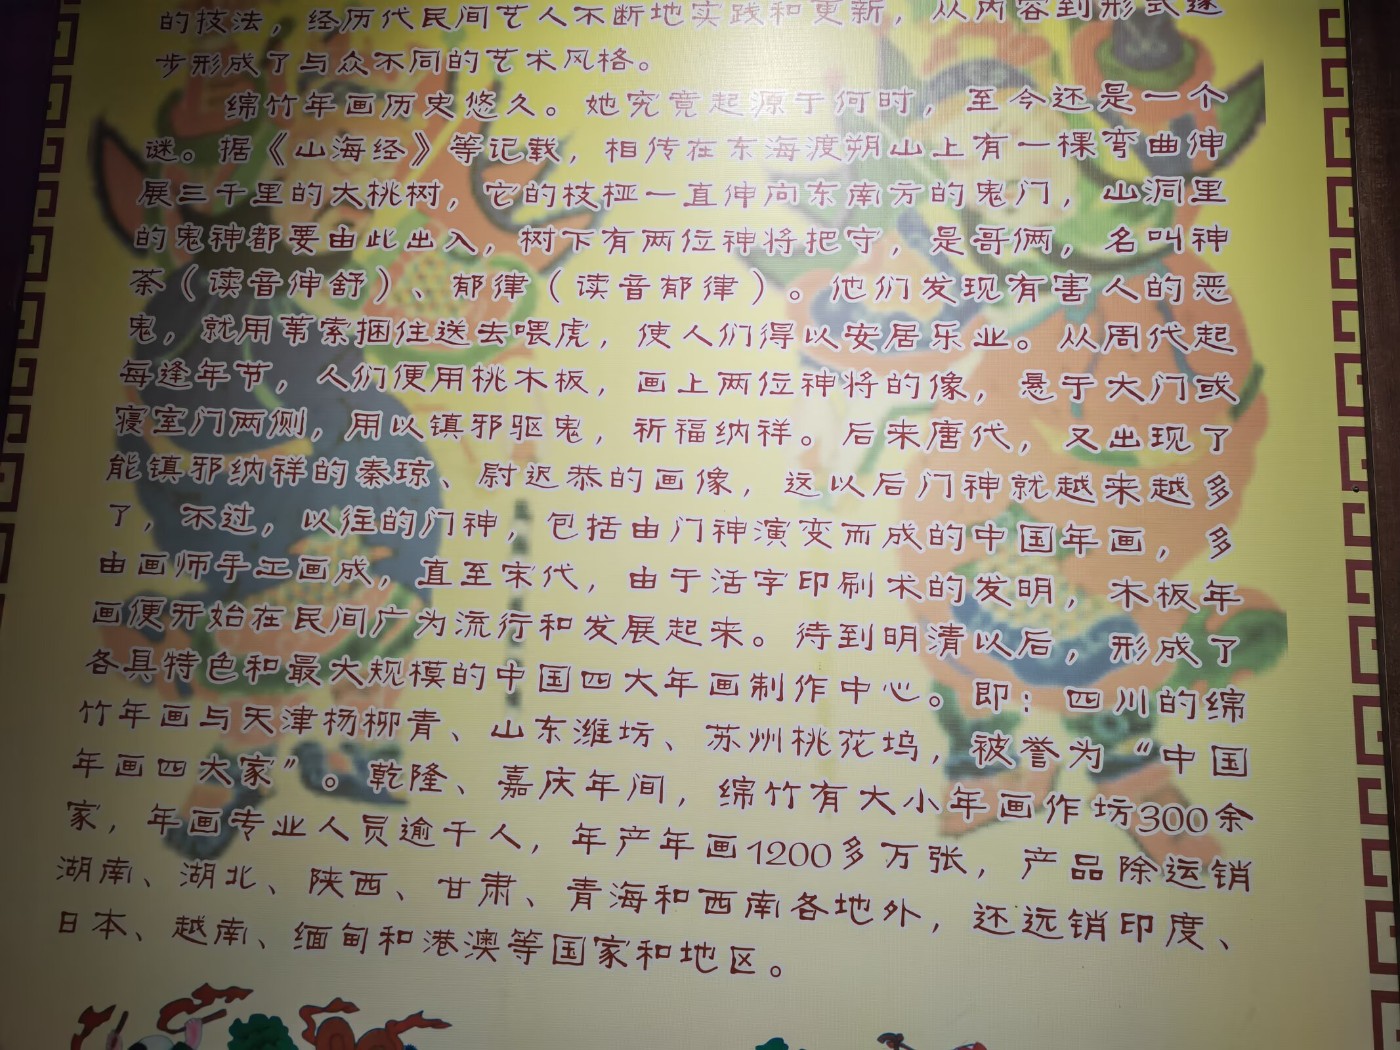 的技法，经历代民间艺人不断地实践和更新，从内容到形式逐
步形成了与众不同的艺术风格。
绵竹年画历史悠久。她究竟起源于何时，至今还是一个
谜。据《山海经》等记载，相传在东海渡朔山上有一棵弯曲伸
展三千里的大桃树，它的枝桠一直伸向东南方的鬼门，山洞里
的鬼神都要由此出入，树下有两位神将把守，是哥俩，名叫神
荼（读音伸舒）、郁律（读音郁律）。他们发现有害人的恶
鬼，就用苇索捆住送去喂虎，使人们得以安居乐业。从周代起
每逢年节，人们便用桃木板，画上两位神将的像，悬于大门或
寝室门两侧，用以镇邪驱鬼，祈福纳祥。后来唐代，又出现了
能镇邪纳祥的秦琼、尉迟恭的画像，这以后门神就越来越多
了，不过，以往的门神，包括由门神演变而成的中国年画，多
由画师手工画成，直至宋代，由于活字印刷术的发明，木板年
画便开始在民间广为流行和发展起来。待到明清以后，形成了
各具特色和最大规模的中国四大年画制作中心。即：四川的绵
竹年画与天津杨柳青、山东潍坊、苏州桃花坞，被誉为“中国
年画四大家”。乾隆、嘉庆年间，绵竹有大小年画作坊300余
家，年画专业人员逾千人，年产年画1200多万张，产品除运销
湖南、湖北、陕西、甘肃、青海和西南各地外，还远销印度、
日本、越南、缅甸和港澳等国家和地区。